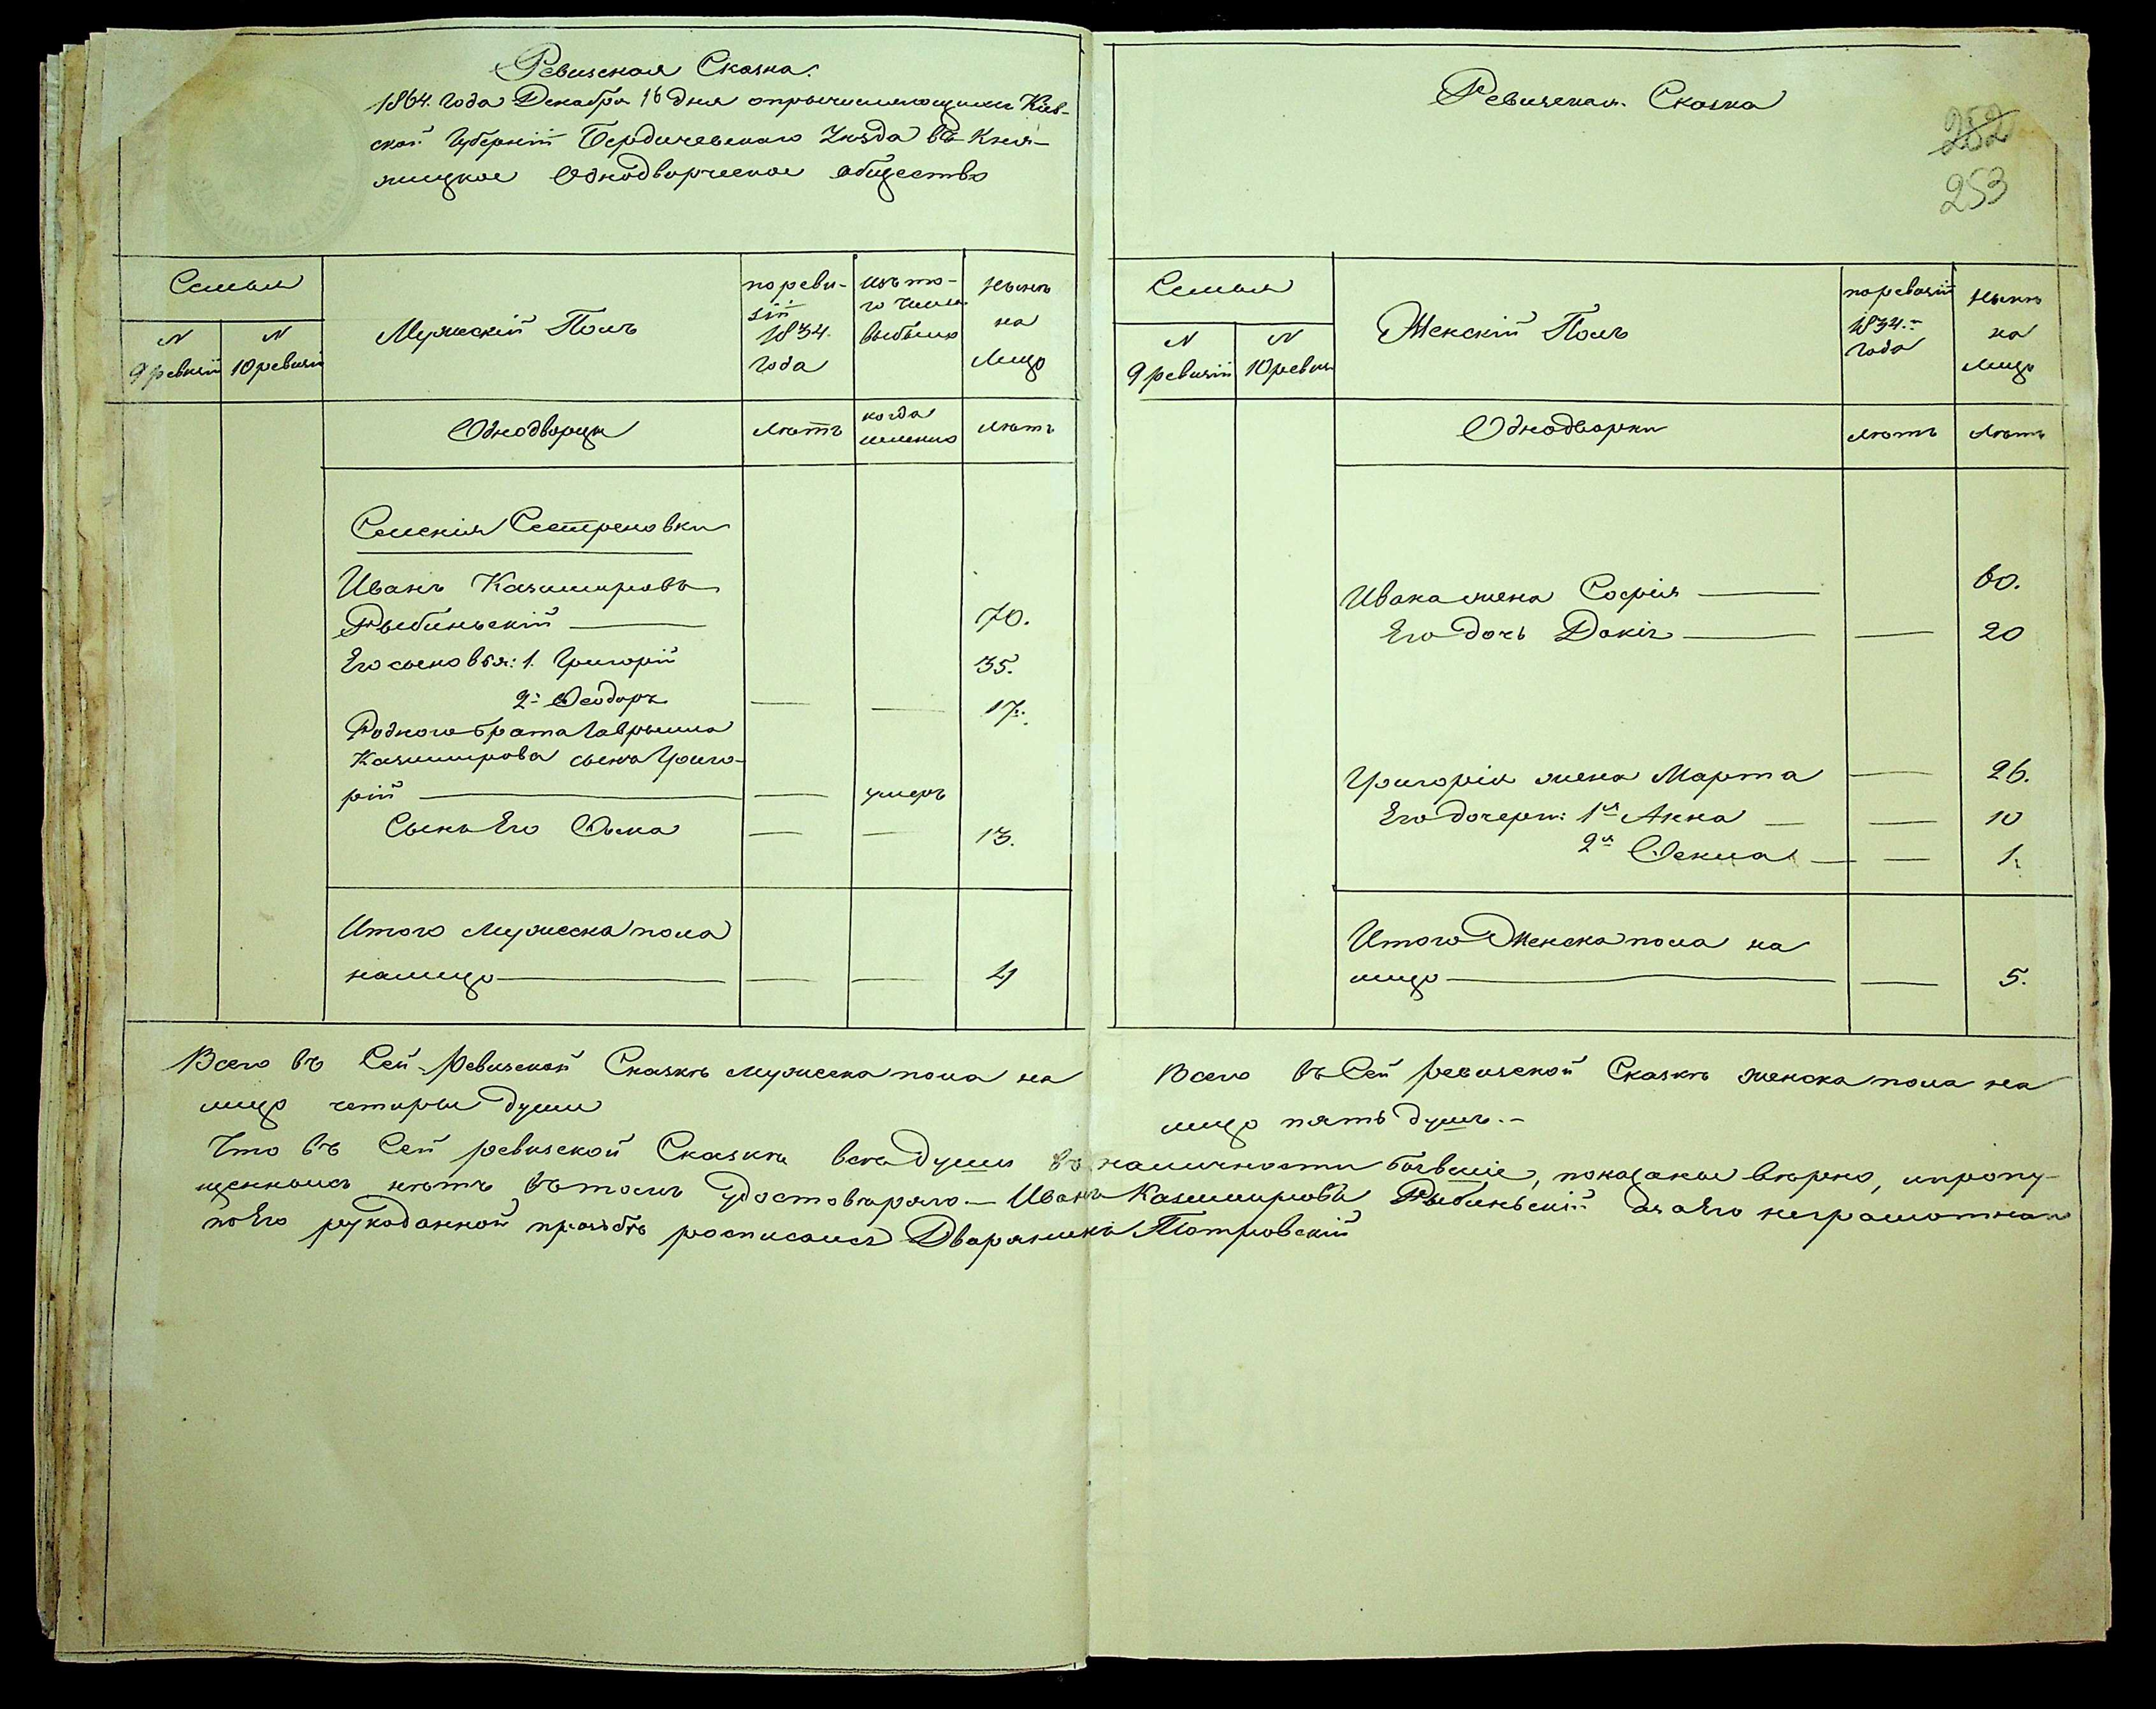 Ревизская Сказка.
1864. года Декабря 16 дня о причисляющимся Кiев-
ской Губернiй Бердичевскаго Уѣзда въ Кня-
жицкое Однодворческое общество
Семьи
N
9 ревизiй
N
10 ревизiй
Мужескiй Полъ
по реви-
зiй
1834.
года
изъ то-
го числа
выбыло
нынѣ
на
Лицо
Однодворцы
Лѣтъ
когда
именно
Лѣтъ
Селенiя Сестреновки
Иванъ Казимировъ
Рыбиньскiй 70.
Его сыновья: 1. Григорiй 35.
2: Ѳеодоръ 17.
Родного брата Гаврыила
Казимирова сына Григо-
рiй умеръ
Сынъ Его Ѳома 13.
Итого мужеска пола
налицо 4
Всего въ Сей Ревизской Сказкѣ мужеска пола на
лицо четыры души
Ревизская Сказка
252
253
Семьи
N
9 ревизiй
N
10 ревизiи
Женскiй Полъ
по ревизiй
1834.
года
нынѣ
на
лицо
Однодворки
лѣтъ
Лѣтъ
Ивана жена Софiя 60.
Его дочь Докiя 20
Григорiя жена Марта 26.
Его дочери: 1я Анна 10
2я Ѳекла 1.
Итого Женска пола на
лицо 5.
Всего въ Сей ревизской Сказкѣ женска пола на
лицо пять душъ.-
Что въ Сей ревизской Сказкѣ всѣ души въ наличности бывшiе, показаны вѣрно, и пропу-
щенныхъ нѣтъ въ томъ удостовѣряю.— Иванъ Казимировъ Рыбиньскiй а за Его неграмотнаго
по Его рукоданной прозьбѣ росписался Дворянинъ Піотровскiй